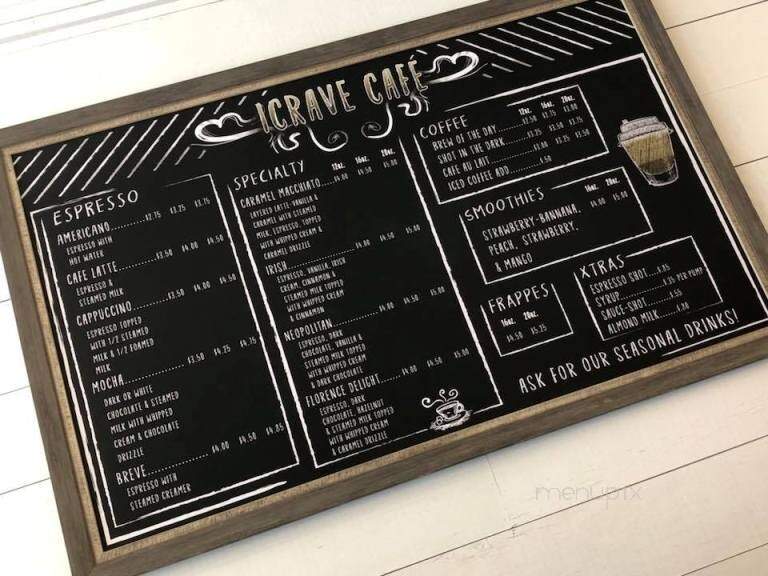 ICRAVE CAFÉ
ESPRESSO
AMERICANO 2.75 3.25 3.75
ESPRESSO WITH
HOT WATER
CAFE LATTE 3.50 4.00 4.50
ESPRESSO &
STEAMED MILK
CAPPUCCINO 3.50 4.00 4.50
ESPRESSO TOPPED
WITH 1/2 STEAMED
MILK & 1/2 FOAMED
MILK
MOCHA 3.50 4.25 4.75
DARK OR WHITE
CHOCOLATE & STEAMED
MILK WITH WHIPPED
CREAM & CHOCOLATE
DRIZZLE
BREVE 4.00 4.50
ESPRESSO WITH
STEAMED CREAMER
SPECIALTY 12oz. 16oz. 20oz.
CARAMEL MACCHIATO 4.00 4.50 5.00
LAYERED LATTE-VANILLA &
CARAMEL WITH STEAMED
MILK, ESPRESSO, TOPPED
WITH WHIPPED CREAM &
CARAMEL DRIZZLE
IRISH 4.00 4.50 5.00
ESPRESSO, VANILLA, IRISH
CREAM, CINNAMON &
STEAMED MILK TOPPED
WITH WHIPPED CREAM
& CINNAMON
NEOPOLITAN 4.00 4.50 5.00
ESPRESSO, DARK
CHOCOLATE, VANILLA &
STEAMED MILK TOPPED
WITH WHIPPED CREAM
& DARK CHOCOLATE
FLORENCE DELIGHT 4.00 4.50 5.00
ESPRESSO, DARK
CHOCOLATE, HAZELNUT
& STEAMED MILK TOPPED
WITH WHIPPED CREAM
& CARAMEL DRIZZLE
COFFEE 12oz. 16oz. 20oz.
BREW OF THE DAY 2.50 2.75 3.00
SHOT IN THE DARK 3.25 3.50 3.75
CAFE AU LAIT
ICED COFFEE ADD .50
SMOOTHIES 16oz. 20oz.
STRAWBERRY-BANNANA, 4.00 5.00
PEACH, STRAWBERRY,
& MANGO
FRAPPES
16oz. 20oz.
4.50 5.25
XTRAS
ESPRESSO SHOT
SYRUP .35 PER PUMP
SAUCE-SHOT
ALMOND MILK
ASK FOR OUR SEASONAL DRINKS!
menupix